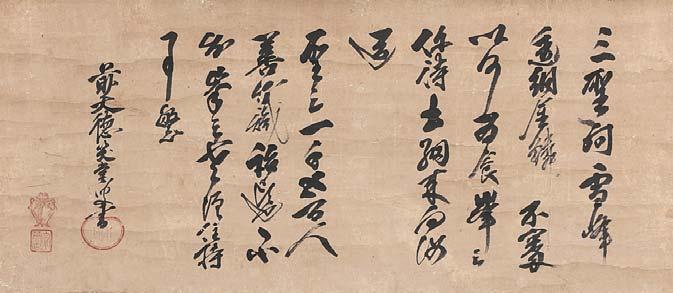 三聖問雪峰
透網金鱗 不審
以何為食 峯云
出網来向汝
道
聖云一千五百人
善知識話頭也不
識峯云老僧住持
事繁
前大徳